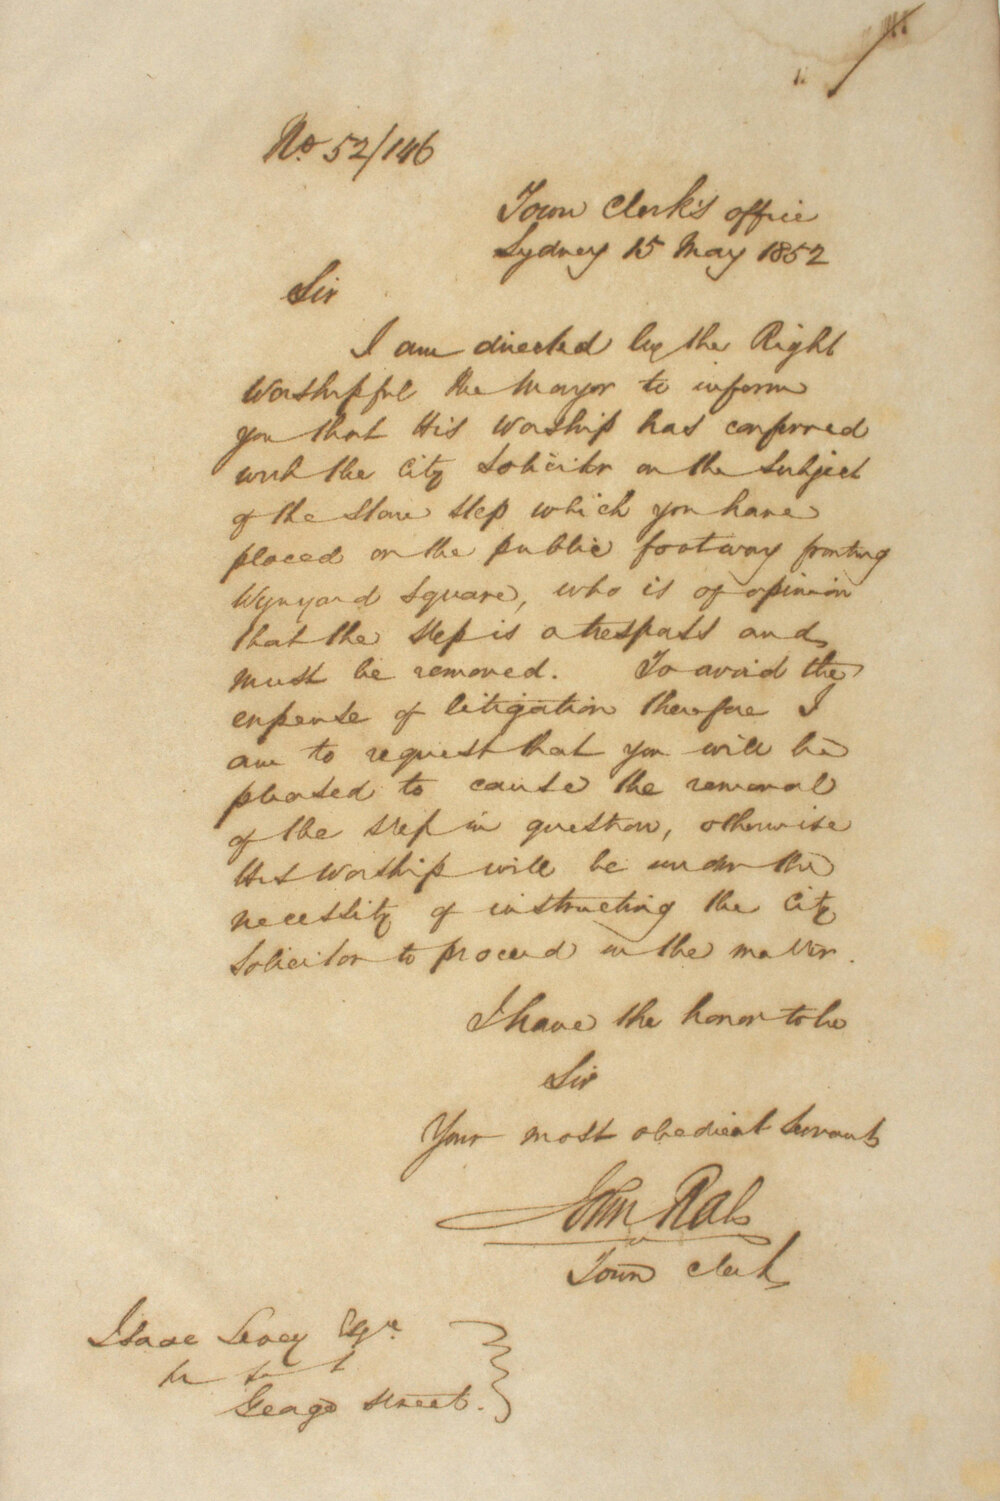 No. 52/146
Town Clerk's office
Sydney 15 May 1852
Sir
I am directed by the Right
Worshipful the Mayor to inform
you that His Worship has conferred
with the City Solicitor on the subject
of the stone step which you have
placed on the public footway fronting
Wynyard Square, who is of opinion
that the step is a trespass and
must be removed. To avoid the
expense of litigation therefore I
am to request that you will be
pleased to cause the removal
of the step in question, otherwise
His Worship will be under the
necessity of instructing the City
Solicitor to proceed in the matter.
I have the honor to be
Sir
Your most obedient Servant
John Rae
Town Clerk
Isaac Levey Esqre.
George Street.